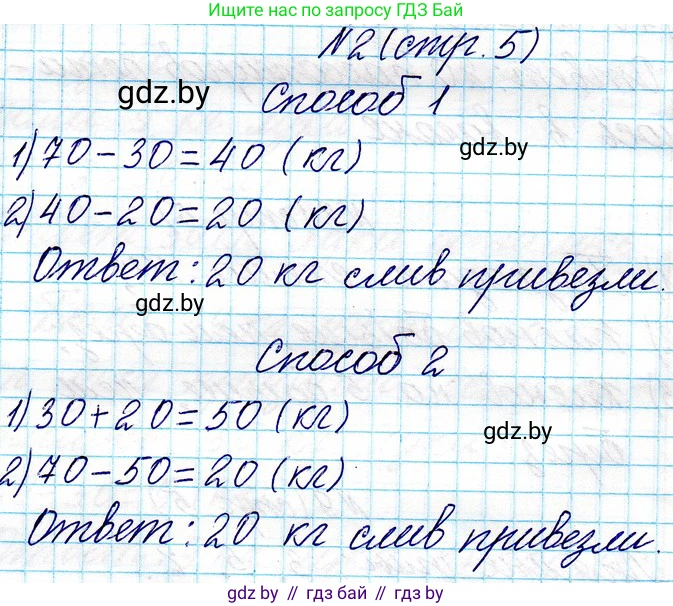 Ищите нас по запросу ГДЗ Бай
N2 (стр. 5)
gdz.by
Способ 1
1) 70 - 30 = 40 (кг)
gdz.by
2) 40 - 20 = 20 (кг)
Ответ: 20 кг слив привезли.
gdz.by
Способ 2
1) 30 + 20 = 50 (кг)
gdz.by
2) 70 - 50 = 20 (кг)
Ответ: 20 кг слив привезли.
gdz.by // гдз бай // gdz.by